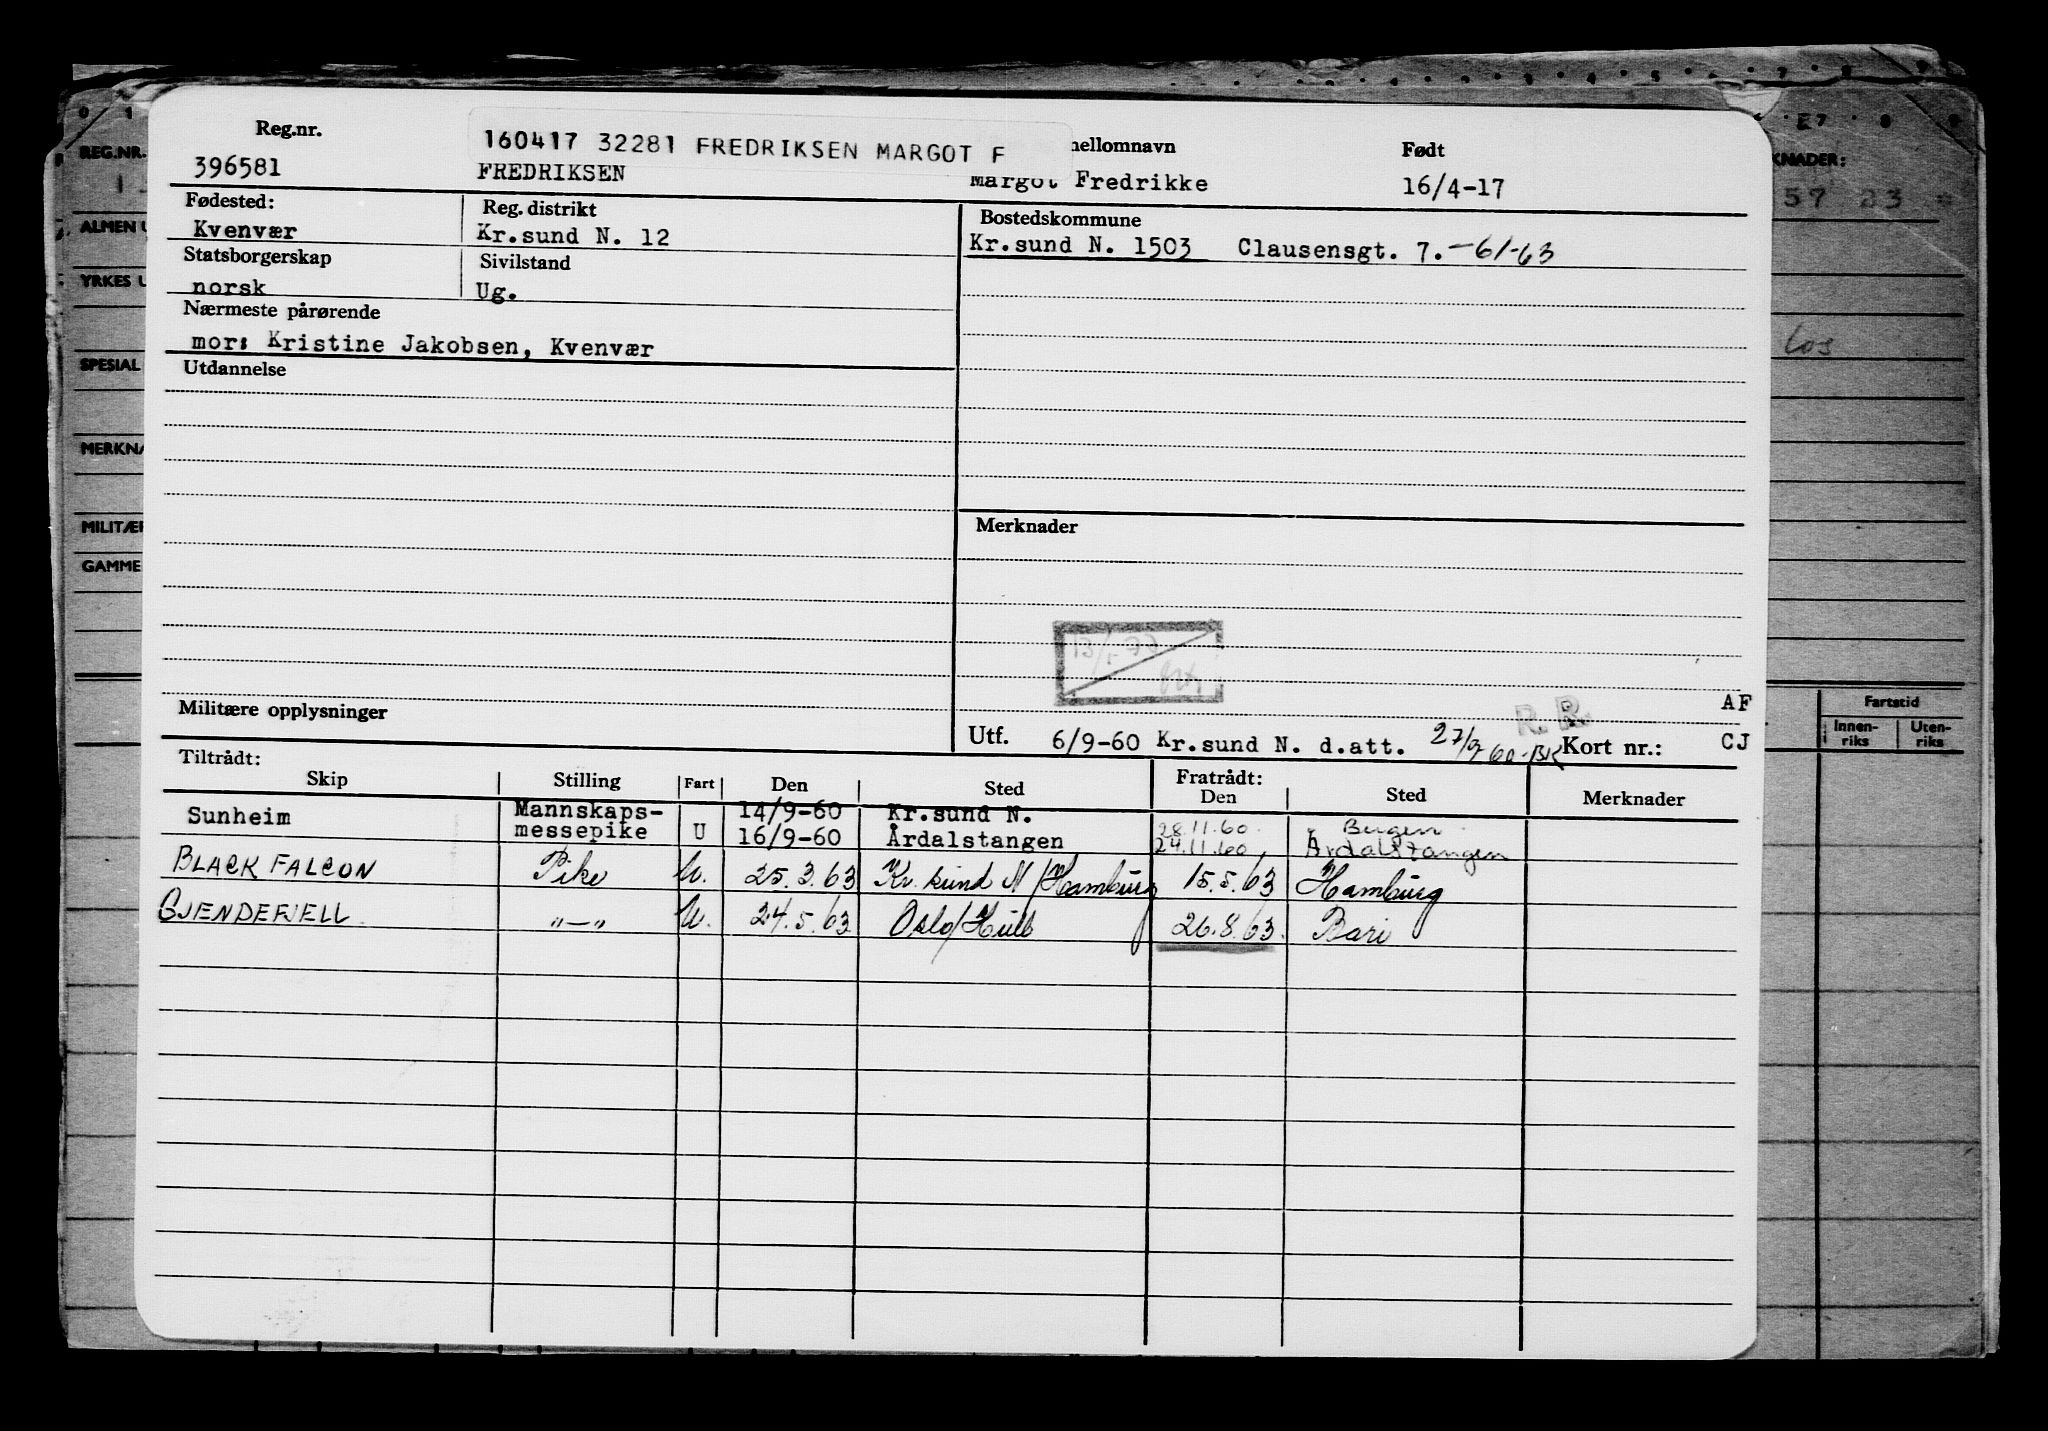 Reg.nr.
160417 32281 FREDRIKSEN MARGOT F
nellomnavn
Født
396581
FREDRIKSEN
Margot Fredrikke
16/4-17
Fødested:
Reg. distrikt
Bostedskommune
Kvenvær
Kr.sund N. 12
Kr.sund N. 1503 Clausensgt. 7. -61-63
Statsborgerskap
Sivilstand
norsk
Ug.
Nærmeste pårørende
mor: Kristine Jakobsen, Kvenvær
Utdannelse
Merknader
Militære opplysninger
R.R.
AF
Utf. 6/9-60 Kr.sund N. d.att. 27/9 60-BK Kort nr.: CJ
Tiltrådt:
Fratrådt:
Skip Stilling Fart Den Sted Den Sted Merknader
Sunheim Mannskaps- 14/9-60 Kr.sund N. 28.11.60. Bergen
messepike U 16/9-60 Årdalstangen 24.11.60, Årdalstangen
BLACK FALCON Pike U. 25.3.63 Kr. sund N/Hamburg 15.5.63 Hamburg
GJENDEFJELL "—" U. 24.5.63 Oslo/Hull 26.8.63. Bari
REG.NR.
ALMEN U
YRKES U
SPESIAL
MERKNA
MILITÆR
GAMME
KNADER:
57 23
Los
Fartstid
Innen-
riks
Uten-
riks